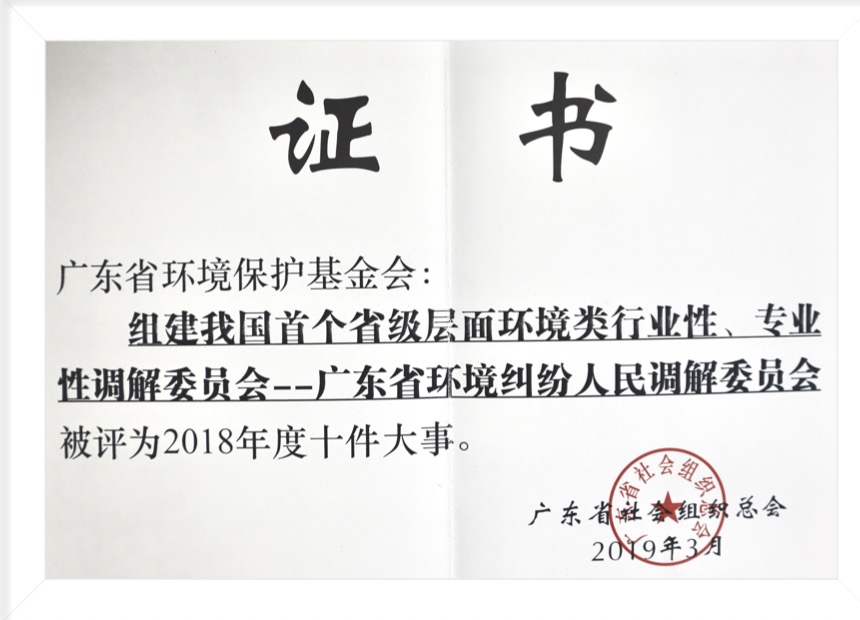 证书
广东省环境保护基金会：
组建我国首个省级层面环境类行业性、专业
性调解委员会--广东省环境纠纷人民调解委员会
被评为2018年度十件大事。
广东省社会组织总会
广东省社会组织总会
2019年3月